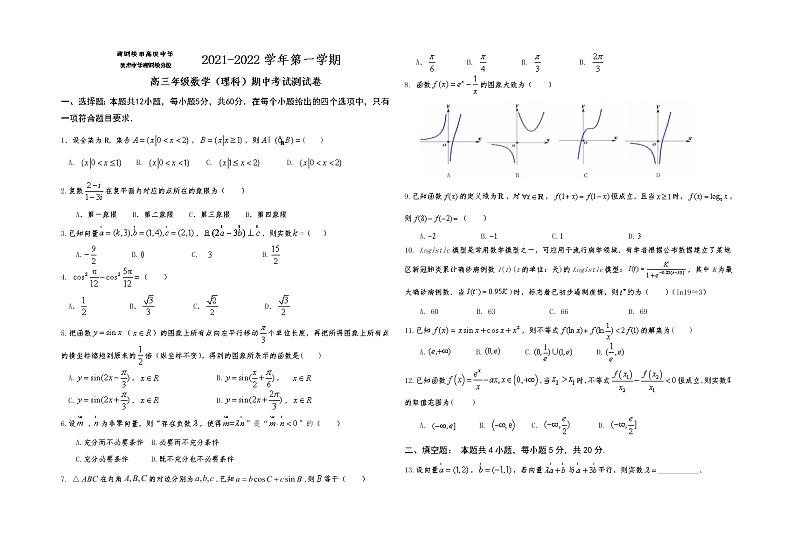 2021-2022 学年第一学期
高三年级数学（理科）期中考试测试卷
一、选择题：本题共12小题，每小题5分，共60分．在每个小题给出的四个选项中，只有
一项符合题目要求．
1. 设全集为 R，集合 A={x|0<x<2}，B={x|x≥1}，则 A∩(∁RB)=（ ）
A. {x|0<x≤1} B. {x|0<x<1} C. {x|1≤x<2} D. {x|0<x<2}
2.复数 (2-i)/(1-3i) 在复平面内对应的点所在的象限为（ ）
A．第一象限 B．第二象限 C．第三象限 D．第四象限
3.已知向量 a=(k,3),b=(1,4),c=(2,1)，且(2a-3b)⊥c，则实数k =（ ）
A. -9/2 B. 0 C. 3 D. 15/2
4. cos²π/12-cos²5π/12=（ ）
A．1/2 B．√3/3 C．√2/2 D．√3/2
5.把函数 y=sin x（x∈R）的图象上所有点向左平行移动 π/3 个单位长度，再把所得图象上所有点
的横坐标缩短到原来的 1/2 倍（纵坐标不变），得到的图象所表示的函数是（ ）
A. y=sin(2x-π/3)，x∈R B. y=sin(x/2+π/6)，x∈R
C. y=sin(2x+π/3)，x∈R D. y=sin(2x+2π/3)，x∈R
6.设m，n为非零向量，则“存在负数λ，使得m=λn”是“m·n<0”的（ ）
A.充分而不必要条件 B.必要而不充分条件
C.充分必要条件 D.既不充分也不必要条件
7. △ABC在内角A,B,C的对边分别为a,b,c,已知a=bcosC+csinB,则B等于（ ）
A. π/6 B. π/4 C. π/3 D. 2π/3
8. 函数f(x)=eˣ-1/x的图象大致为（ ）
y y y y
x x x x
o o o o
A B C D
9.已知函数f(x)的定义域为R，对∀x∈R，f(1+x)=f(1-x)恒成立，且当x≥1时，f(x)=log₃x，
则f(8)-f(-2)=（ ）
A.-2 B.-1 C.1 D.3
10. Logistic模型是常用数学模型之一，可应用于流行病学领域．有学者根据公布数据建立了某地
区新冠肺炎累计确诊病例数I(t)（t的单位：天）的Logistic模型：I(t)=K/(1+e^(-0.23(t-53)))，其中K为最
大确诊病例数．当I(t*)=0.95K时，标志着已初步遏制疫情，则t*约为（ ）(ln19≈3)
A．60 B．63 C．66 D．69
11.已知f(x)=xsinx+cosx+x²，则不等式f(lnx)+f(ln1/x)<2f(1)的解集为（ ）
A.(e,+∞) B.(0,e) C.(0,1/e)∪(1,e) D.(1/e,e)
12.已知函数f(x)=eˣ/x-ax,x∈(0,+∞),当x₂>x₁时,不等式f(x₁)/x₂-f(x₂)/x₁<0恒成立,则实数a
的取值范围为（ ）
A. (-∞,e] B. (-∞,e) C. (-∞,e/2) D. (-∞,e/2]
二、填空题： 本题共4小题，每小题5分，共20分．
13.设向量a=(1,2)，b=(-1,1)，若向量λa+b与a+3b平行，则实数λ=________．